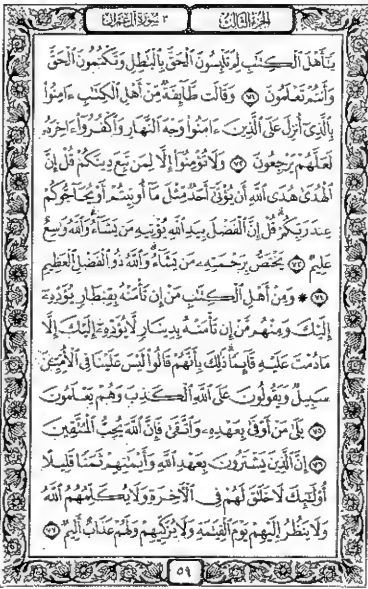 الجزء الثالث
٣ سورة آل عمران
يَٰٓأَهْلَ ٱلْكِتَٰبِ لِمَ تَلْبِسُونَ ٱلْحَقَّ بِٱلْبَٰطِلِ وَتَكْتُمُونَ ٱلْحَقَّ
وَأَنتُمْ تَعْلَمُونَ ٧١ وَقَالَت طَّآئِفَةٌ مِّنْ أَهْلِ ٱلْكِتَٰبِ ءَامِنُوا۟
بِٱلَّذِىٓ أُنزِلَ عَلَى ٱلَّذِينَ ءَامَنُوا۟ وَجْهَ ٱلنَّهَارِ وَٱكْفُرُوٓا۟ ءَاخِرَهُۥ
لَعَلَّهُمْ يَرْجِعُونَ ٧٢ وَلَا تُؤْمِنُوٓا۟ إِلَّا لِمَن تَبِعَ دِينَكُمْ قُلْ إِنَّ
ٱلْهُدَىٰ هُدَى ٱللَّهِ أَن يُؤْتَىٰٓ أَحَدٌ مِّثْلَ مَآ أُوتِيتُمْ أَوْ يُحَآجُّوكُمْ
عِندَ رَبِّكُمْ قُلْ إِنَّ ٱلْفَضْلَ بِيَدِ ٱللَّهِ يُؤْتِيهِ مَن يَشَآءُ وَٱللَّهُ وَٰسِعٌ
عَلِيمٌ ٧٣ يَخْتَصُّ بِرَحْمَتِهِۦ مَن يَشَآءُ وَٱللَّهُ ذُو ٱلْفَضْلِ ٱلْعَظِيمِ
٧٤ ۞ وَمِنْ أَهْلِ ٱلْكِتَٰبِ مَنْ إِن تَأْمَنْهُ بِقِنطَارٍ يُؤَدِّهِۦٓ
إِلَيْكَ وَمِنْهُم مَّنْ إِن تَأْمَنْهُ بِدِينَارٍ لَّا يُؤَدِّهِۦٓ إِلَيْكَ إِلَّا
مَا دُمْتَ عَلَيْهِ قَآئِمًا ذَٰلِكَ بِأَنَّهُمْ قَالُوا۟ لَيْسَ عَلَيْنَا فِى ٱلْأُمِّيِّۦنَ
سَبِيلٌ وَيَقُولُونَ عَلَى ٱللَّهِ ٱلْكَذِبَ وَهُمْ يَعْلَمُونَ
٧٥ بَلَىٰ مَنْ أَوْفَىٰ بِعَهْدِهِۦ وَٱتَّقَىٰ فَإِنَّ ٱللَّهَ يُحِبُّ ٱلْمُتَّقِينَ
٧٦ إِنَّ ٱلَّذِينَ يَشْتَرُونَ بِعَهْدِ ٱللَّهِ وَأَيْمَٰنِهِمْ ثَمَنًا قَلِيلًا
أُو۟لَٰٓئِكَ لَا خَلَٰقَ لَهُمْ فِى ٱلْءَاخِرَةِ وَلَا يُكَلِّمُهُمُ ٱللَّهُ
وَلَا يَنظُرُ إِلَيْهِمْ يَوْمَ ٱلْقِيَٰمَةِ وَلَا يُزَكِّيهِمْ وَلَهُمْ عَذَابٌ أَلِيمٌ ٧٧
٥٩